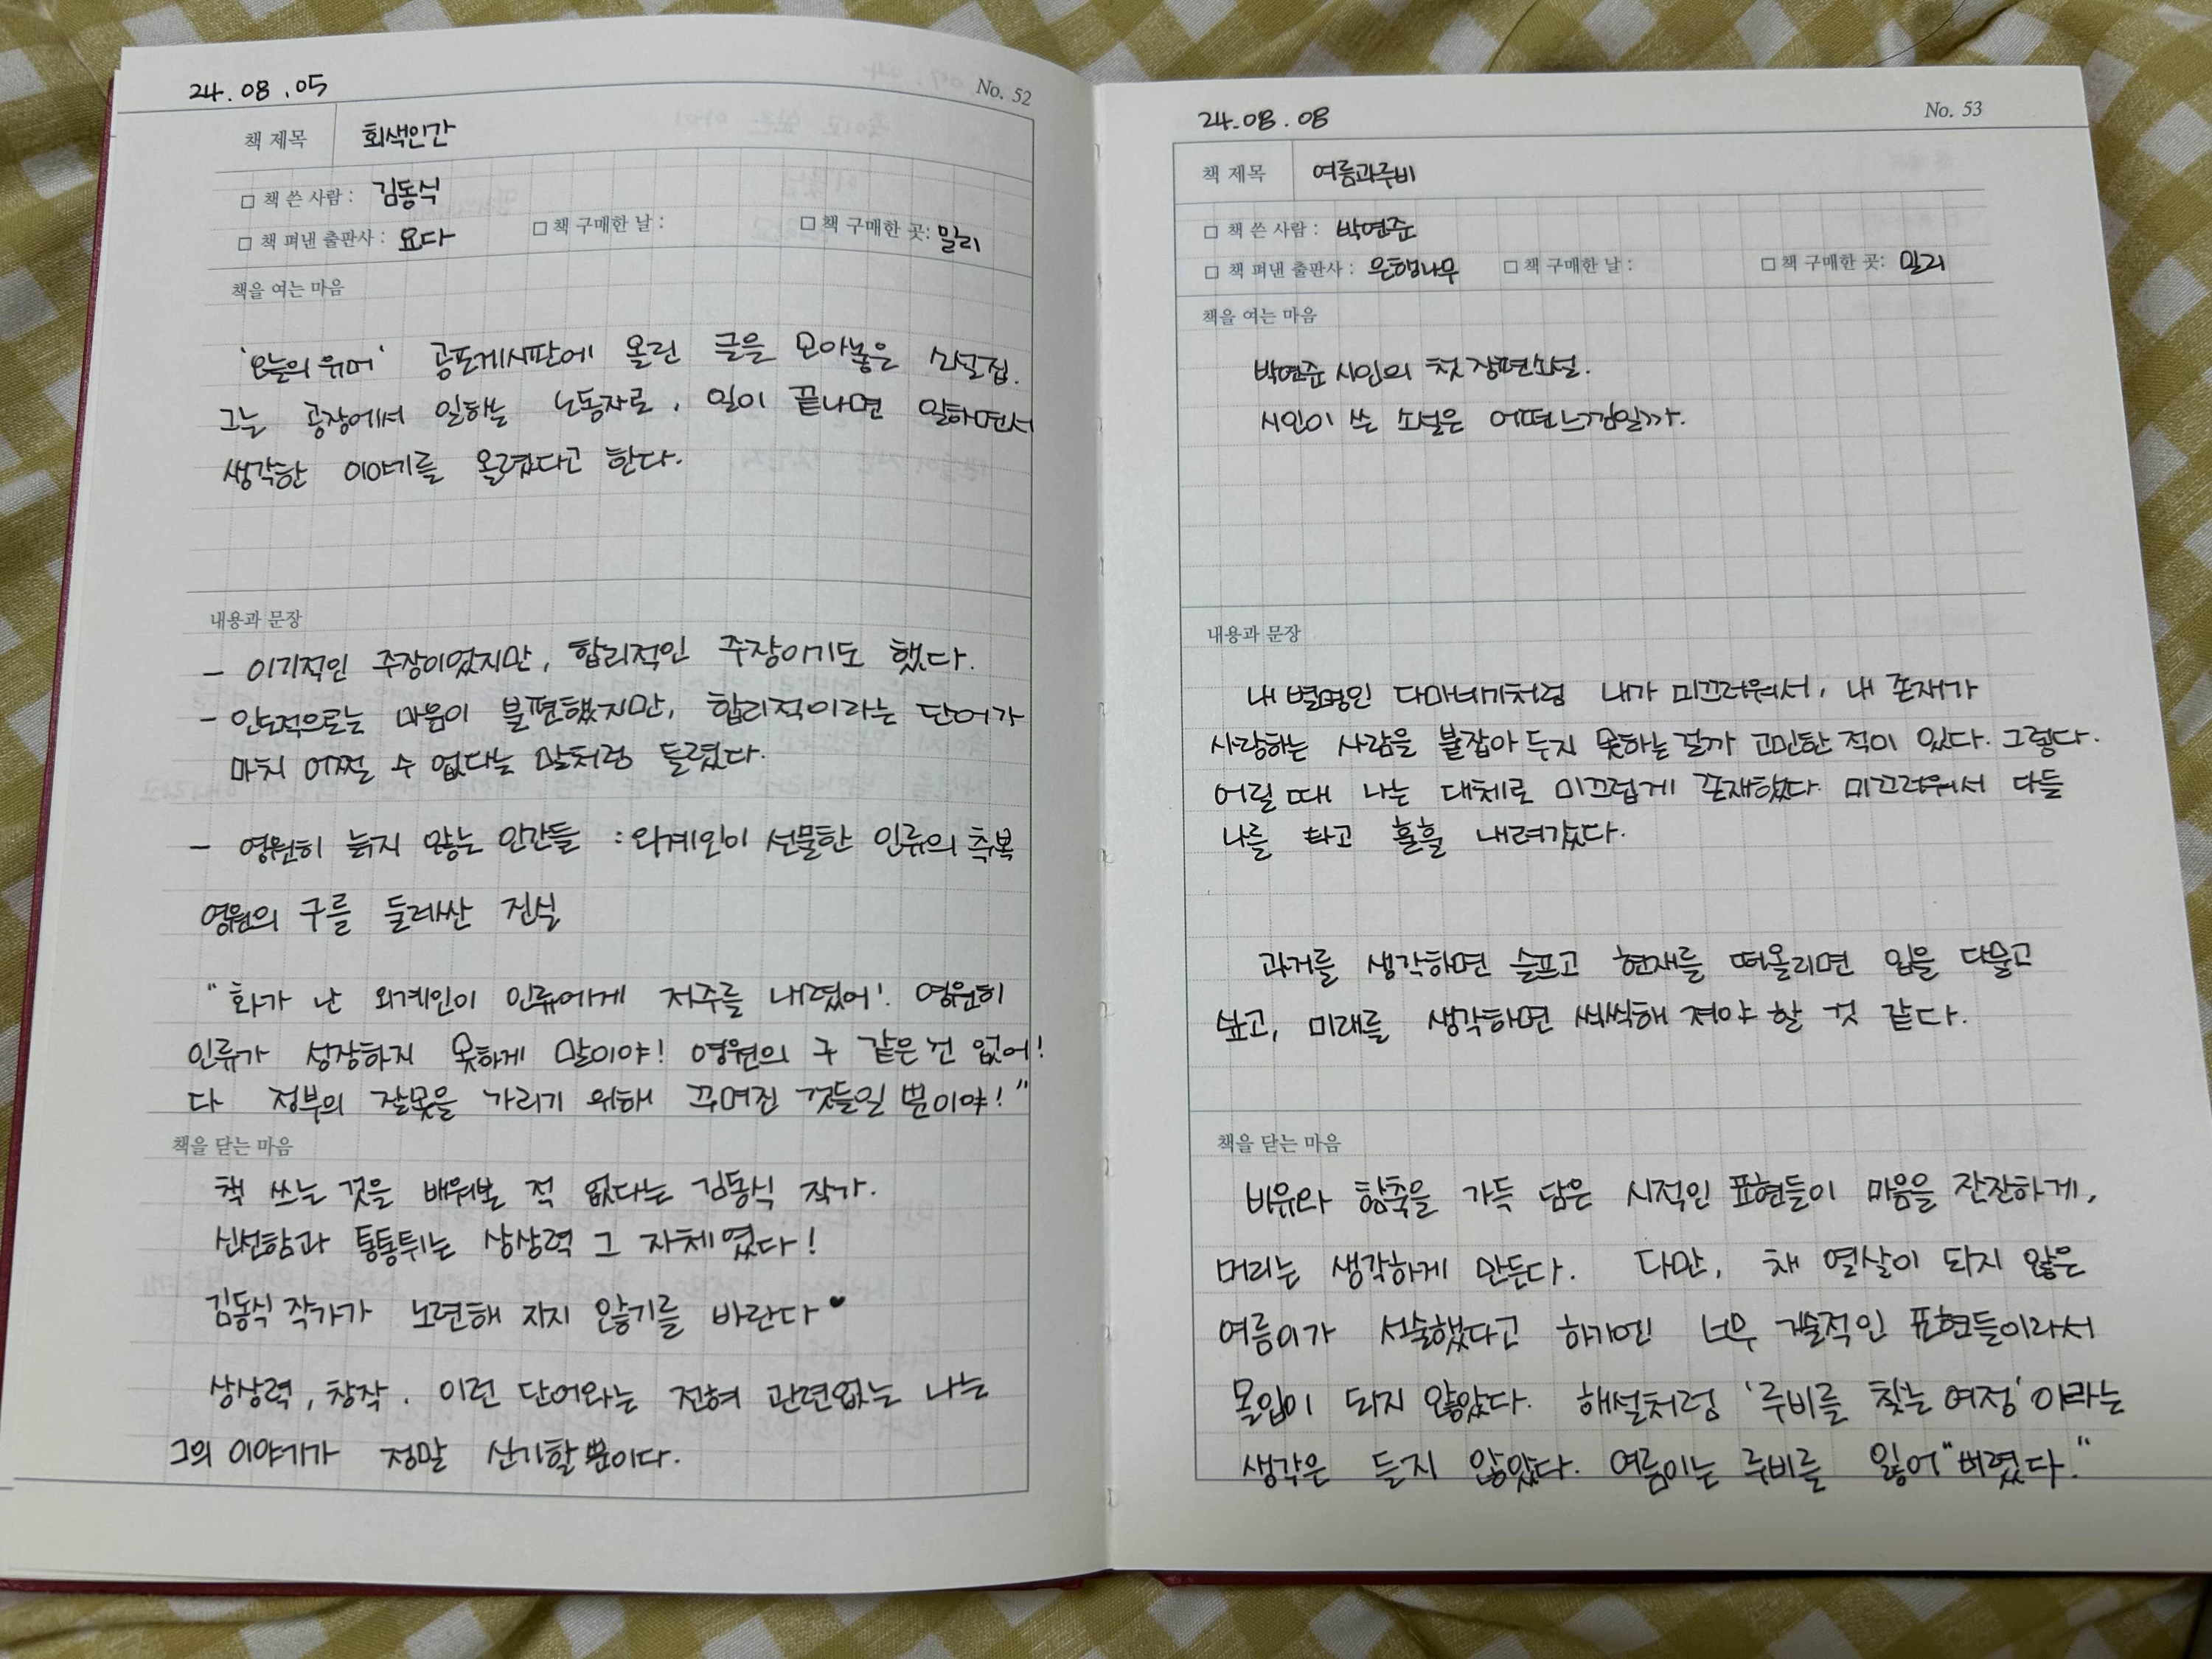 24.08.05
No. 52
책 제목 회색인간
□ 책 쓴 사람 : 김동식
□ 책 펴낸 출판사 : 요다 □ 책 구매한 날 : □ 책 구매한 곳: 밀리
책을 여는 마음
'오늘의 유머' 공포게시판에 올린 글을 모아놓은 소설집.
그는 공장에서 일하는 노동자로, 일이 끝나면 일하면서
생각한 이야기를 올렸다고 한다.
내용과 문장
- 이기적인 주장이었지만, 합리적인 주장이기도 했다.
- 인도적으로는 마음이 불편했지만, 합리적이라는 단어가
마치 어쩔 수 없다는 말처럼 들렸다.
- 영원히 늙지 않는 인간들 : 외계인이 선물한 인류의 축복
영원의 구를 둘레싼 진실
"화가 난 외계인이 인류에게 저주를 내렸어! 영원히
인류가 성장하지 못하게 말이야! 영원의 구 같은 건 없어!
다 정부의 잘못을 가리기 위해 꾸며진 것들일 뿐이야!"
책을 닫는 마음
책 쓰는 것을 배워본 적 없다는 김동식 작가.
신선함과 통통튀는 상상력 그 자체였다!
김동식 작가가 노련해 지지 않기를 바란다♥
상상력, 창작. 이런 단어와는 전혀 관련없는 나는
그의 이야기가 정말 신기할 뿐이다.
24.08.08
No. 53
책 제목 여름과루비
□ 책 쓴 사람 : 박연준
□ 책 펴낸 출판사 : 은행나무 □ 책 구매한 날 : □ 책 구매한 곳: 밀리
책을 여는 마음
박연준 시인의 첫 장편소설.
시인이 쓴 소설은 어떤느낌일까.
내용과 문장
내 별명인 다마네기처럼 내가 미끄러워서, 내 존재가
사랑하는 사람을 붙잡아 두지 못하는 걸까 고민한 적이 있다. 그렇다.
어릴 때 나는 대체로 미끄럽게 존재했다. 미끄러워서 다들
나를 타고 훌훌 내려갔다.
과거를 생각하면 슬프고 현재를 떠올리면 입을 다물고
싶고, 미래를 생각하면 씩씩해 져야 할 것 같다.
책을 닫는 마음
비유와 함축을 가득 담은 시적인 표현들이 마음을 잔잔하게,
머리는 생각하게 만든다. 다만, 채 열살이 되지 않은
여름이가 서술했다고 하기엔 너무 예술적인 표현들이라서
몰입이 되지 않았다. 해설처럼 '루비를 찾는 여정'이라는
생각은 들지 않았다. 여름이는 루비를 잃어"버렸다."